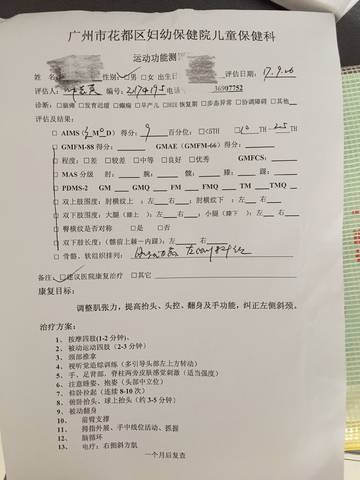 广州市花都区妇幼保健院儿童保健科
运动功能测
姓名 性别 □男 □女 出生日 评估日期: 17.9.26
编号: 电话 36907752
诊断: □脑瘫 □发育迟缓 □癫痫 □早产儿 □HIE恢复期 □步态异常 □协调障碍 □其他
评估及结果:
□ AIMS ( M D) 得分: 9 百分位: □<5TH □ 10 TH— 25 TH
□ GMFM-88 得分: GMAE (GMFM-66) 得分:
□ 程度: □差 □较差 □中等 □良好 □优秀 GMFCS:
□ MAS 分级 肘: 腕: 髋: 膝: 踝:
□ PDMS-2 GM GMQ FM FMQ TM TMQ
□ 双上肢围度: 肘横纹上 : 左 右 ; 肘横纹下 : 左 右
□ 双下肢围度: 大腿 (膝上 ): 左 右 ; 小腿 (膝下 ): 左 右
□ 脊横纹是否对称 □是 □否
□ 双下肢长度: (髂前上棘—内踝): 左 右
□ 骨骼、软组织排列:
备注: □建议医院康复治疗 □其它
康复目标:
调整肌张力, 提高抬头、头控、翻身及手功能, 纠正左侧斜颈。
治疗方案:
1、 按摩四肢(1-2 分钟)、
2、 被动运动四肢 (2-3 分钟)
3、 颈部推拿
4、 视听觉追综训练 (多引导头部左上方转动)
5、 手、足背部、脊柱两旁皮肤感觉刺激 (适当强度)
6、 注意睡姿、抱姿 (头部中立位)
7、 仰卧拉起 (连续 8-10 次)
8、 俯卧抬头、球上抬头 (约 3-5 分钟)
9、 被动翻身
10、 前臂支撑
11、 拇指外展、手中线位活动、抓握
12、 脑循环
13、 电疗: 右侧斜方肌
一个月后复查